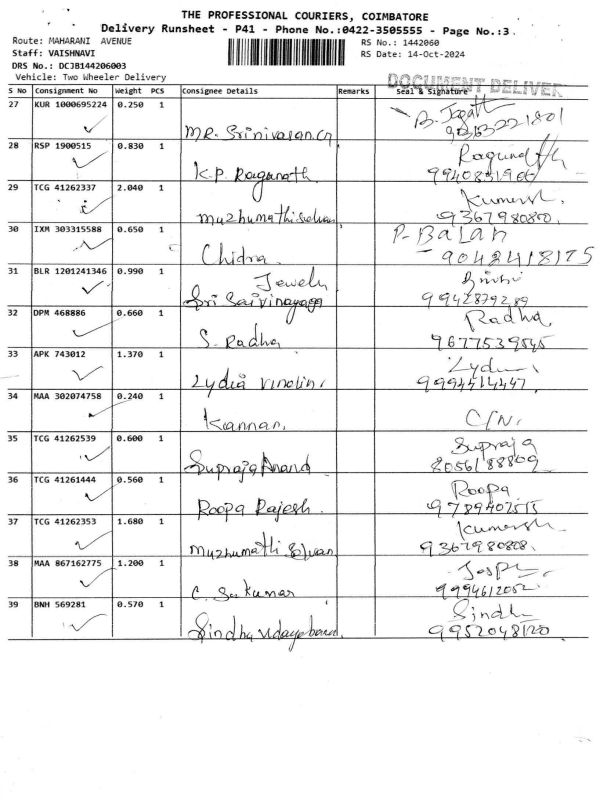 THE PROFESSIONAL COURIERS, COIMBATORE
Delivery Runsheet - P41 - Phone No.:0422-3505555 - Page No.:3
Route: MAHARANI AVENUE
RS No.: 1442060
Staff: VAISHNAVI
RS Date: 14-Oct-2024
DRS No.: DCJB144206003
Vehicle: Two Wheeler Delivery
DOCUMENT DELIVER
S No Consignment No Weight PCS Consignee Details Remarks Seal & Signature
27 KUR 1000695224 0.250 1
MR. Srinivasan.cn
28 RSP 1900515 0.830 1 Ragunath
K.P. Ragunath
29 TCG 41262337 2.040 1 Kumaresh.
Muzhumathi selvan 9367980808.
30 IXM 303315588 0.650 1 P- BALAN
Chidra. 9042418175
31 BLR 1201241346 0.990 1 Jewels
Sri Sai vinayaga 9942879289
32 DPM 468886 0.660 1 Radha
S. Radha 9677539545
33 APK 743012 1.370 1 Lydia
Lydia vinolin. 9994514447.
34 MAA 302074758 0.240 1 C/N.
Kannan.
35 TCG 41262539 0.600 1 Supraja
Supraja Anand 8056188809
36 TCG 41261444 0.560 1 Roopa
Roopa Rajesh. 9789407515
37 TCG 41262353 1.680 1 Kumaresh
Muzhumathi selvan 9367980808.
38 MAA 867162775 1.200 1
C. Sukumar 9994612052
39 BNH 569281 0.570 1 Sindhu
Sindhu udayabanu. 9952048120